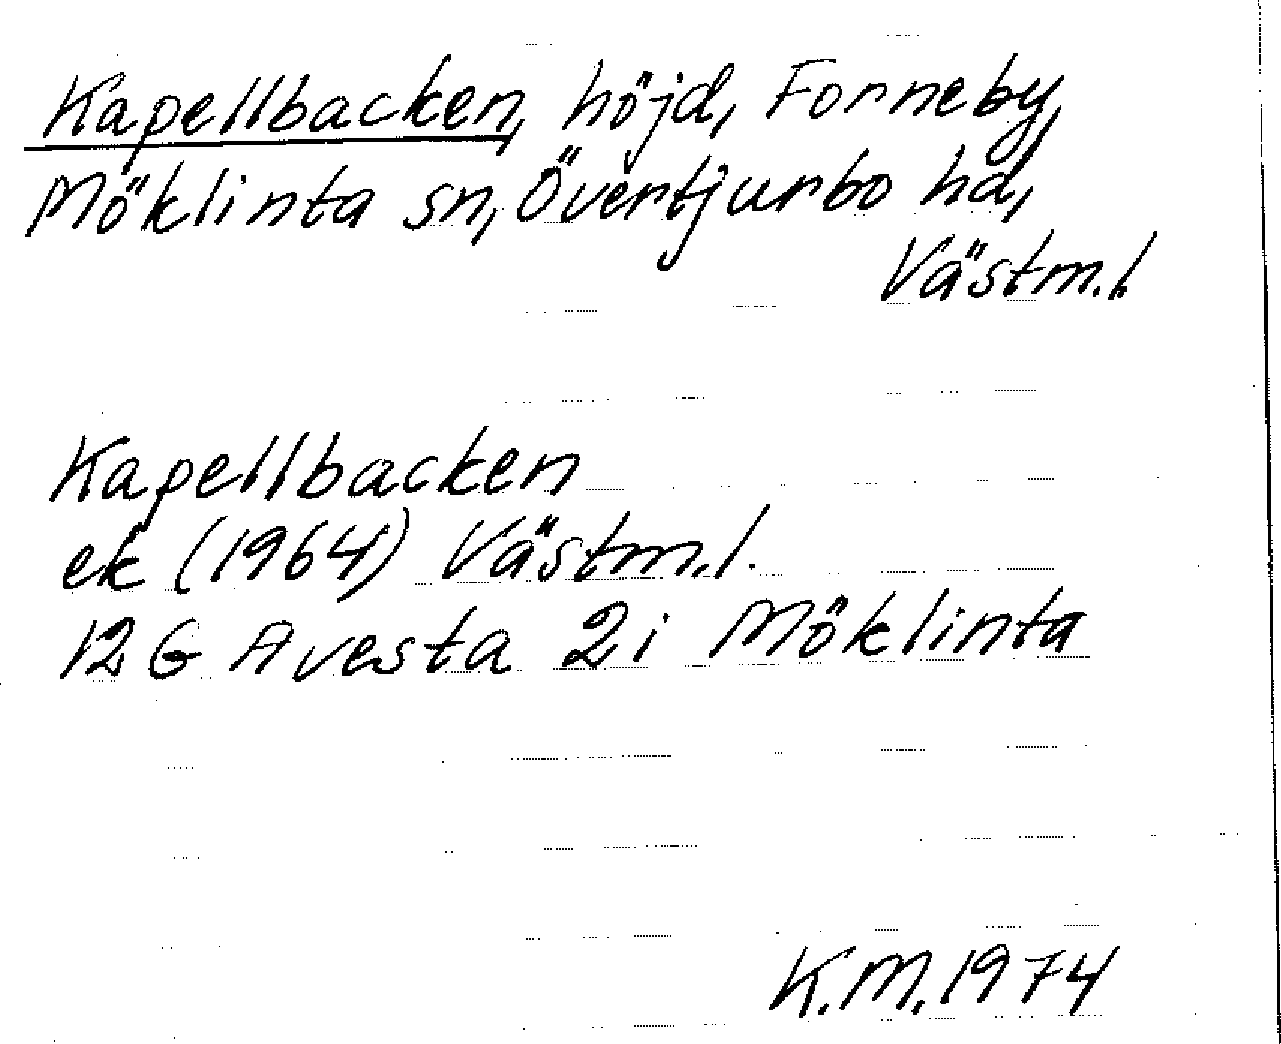 Kapellbacken, höjd, Forneby,
Möklinta sn, Övertjurbo hd,
Västm.l.
Kapellbacken
ek (1964) Västm.l.
12 G Avesta 2i Möklinta
K.M. 1974